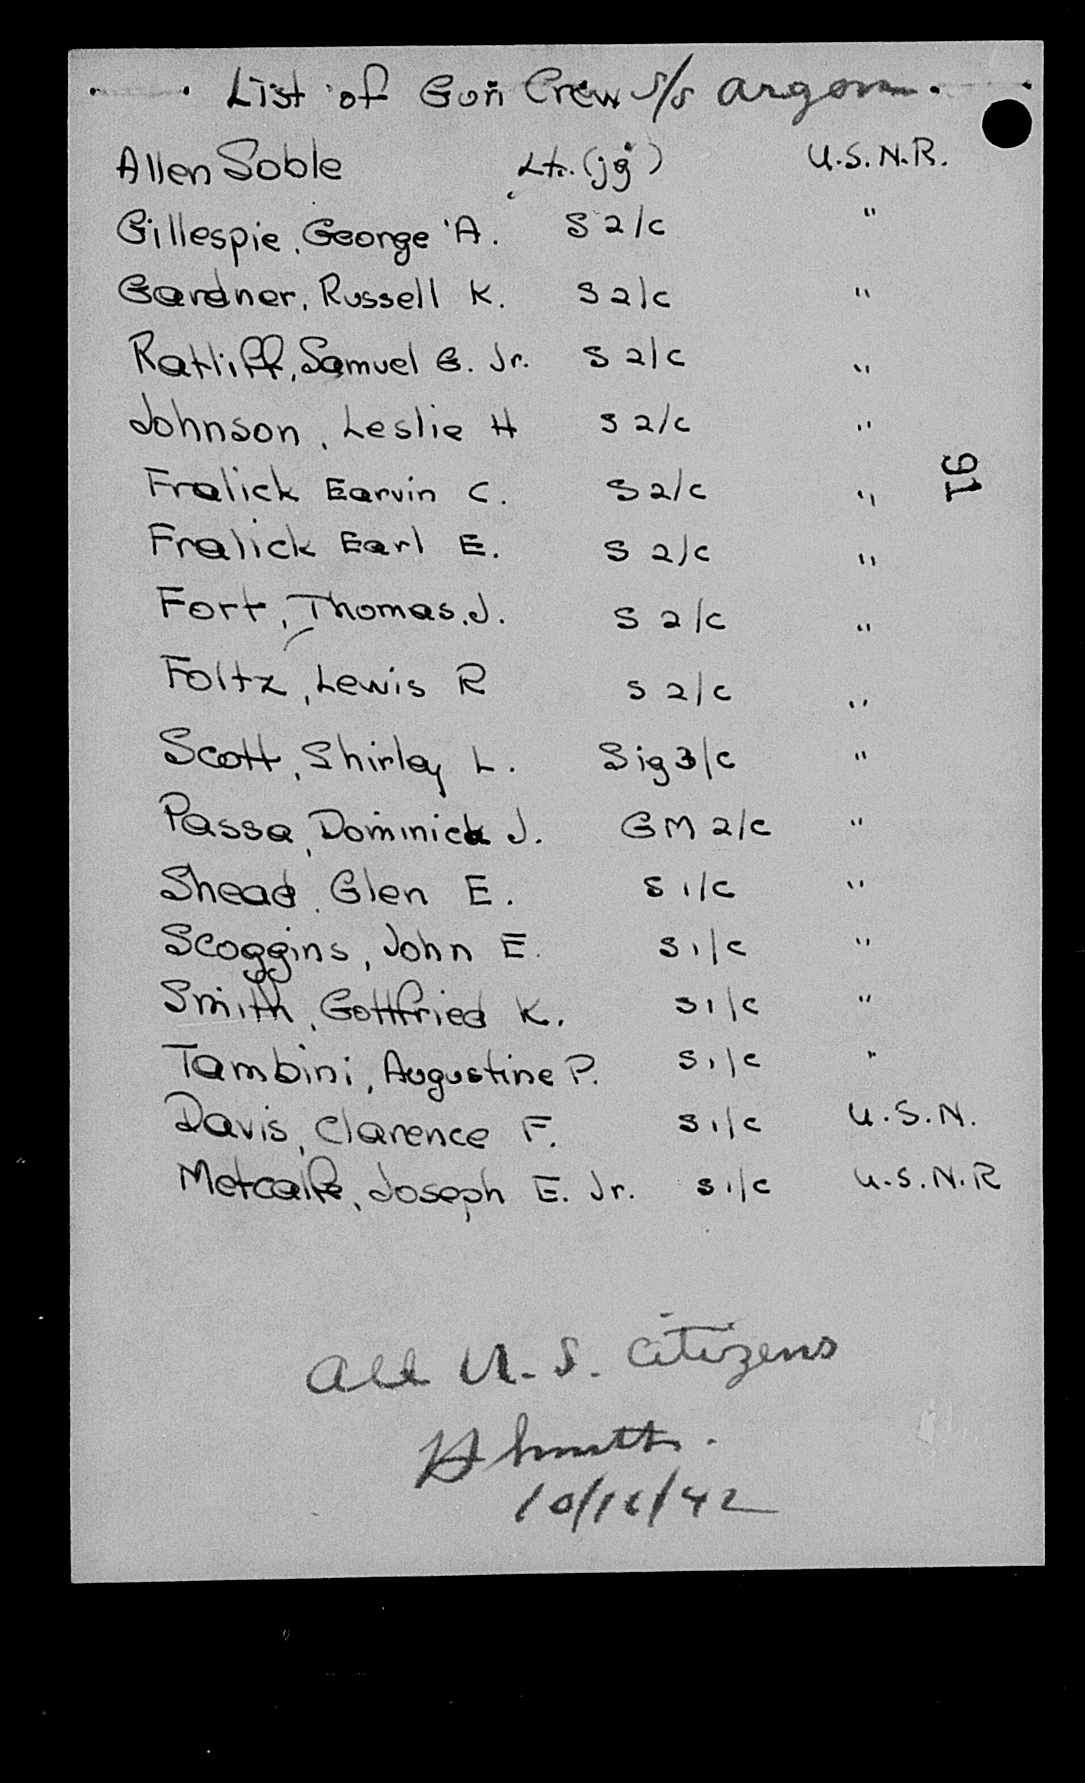 List of Gun Crew S/S Argon.
Allen Soble Lt. (jg) U.S.N.R.
Gillespie, George A. S 2/c "
Gardner, Russell K. S 2/c "
Ratliff, Samuel G. Jr. S 2/c "
Johnson, Leslie H S 2/c "
91
Fralick Earvin C. S 2/c "
Fralick Earl E. S 2/c "
Fort, Thomas J. S 2/c "
Foltz, Lewis R S 2/c "
Scott, Shirley L. Sig 3/c "
Passa, Dominick J. GM 2/c "
Shead, Glen E. S 1/c "
Scoggins, John E. S 1/c "
Smith, Gottfried K. S 1/c "
Tambini, Augustine P. S 1/c "
Davis, Clarence F. S 1/c U.S.N.
Metcalfe, Joseph E. Jr. S 1/c U.S.N.R
All U.S. Citizens
H Smith.
10/16/42